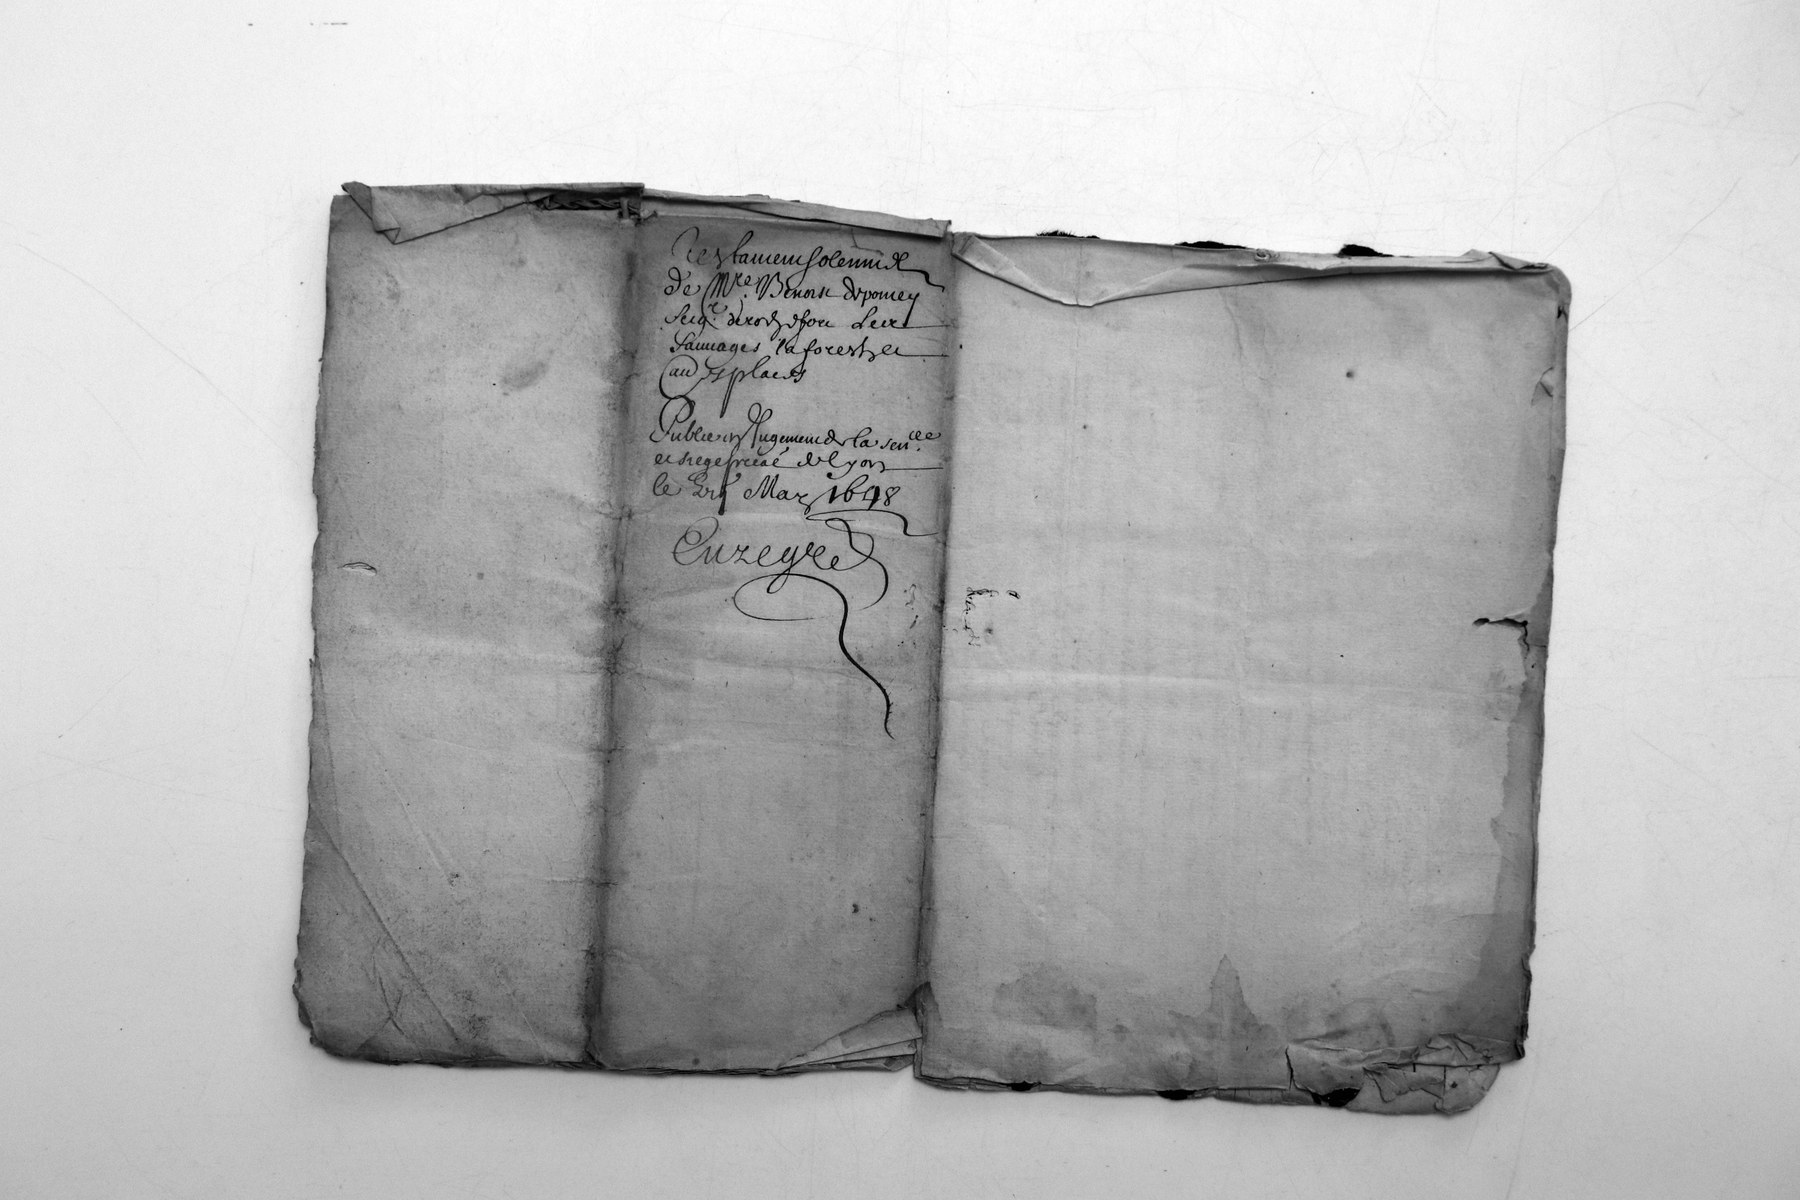 Testament solennel
de Mre Benoist depomey
seigr. derochefort Les
sauuages la forest et
autres places
Publié en Jugement de la senee.
et siege presal de Lyon
le May 1698
Enregre